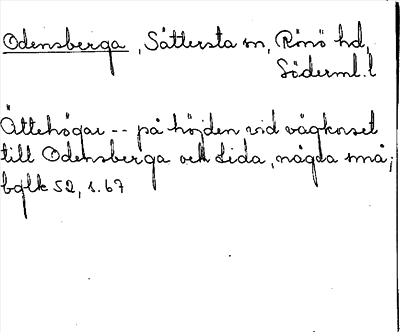 Odensberga, Sättersta sn, Rönö hd,
Söderml. l
Ättehögar -- på höjden vid vägkorset
till Odensberga och Lida, några små;
bglk 52, s. 67